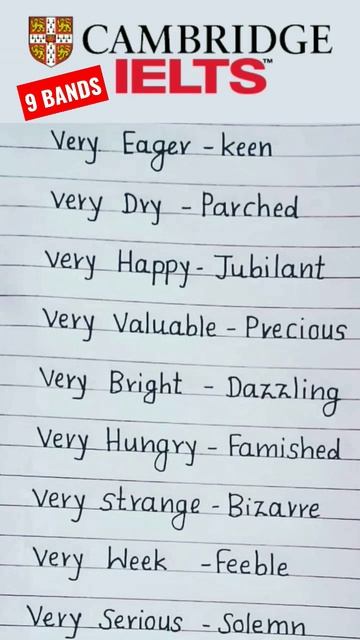 CAMBRIDGE
IELTS™
9 BANDS
Very Eager - keen
Very Dry - Parched
Very Happy - Jubilant
Very Valuable - Precious
Very Bright - Dazzling
Very Hungry - Famished
Very strange - Bizarre
Very Week - Feeble
Very Serious - Solemn